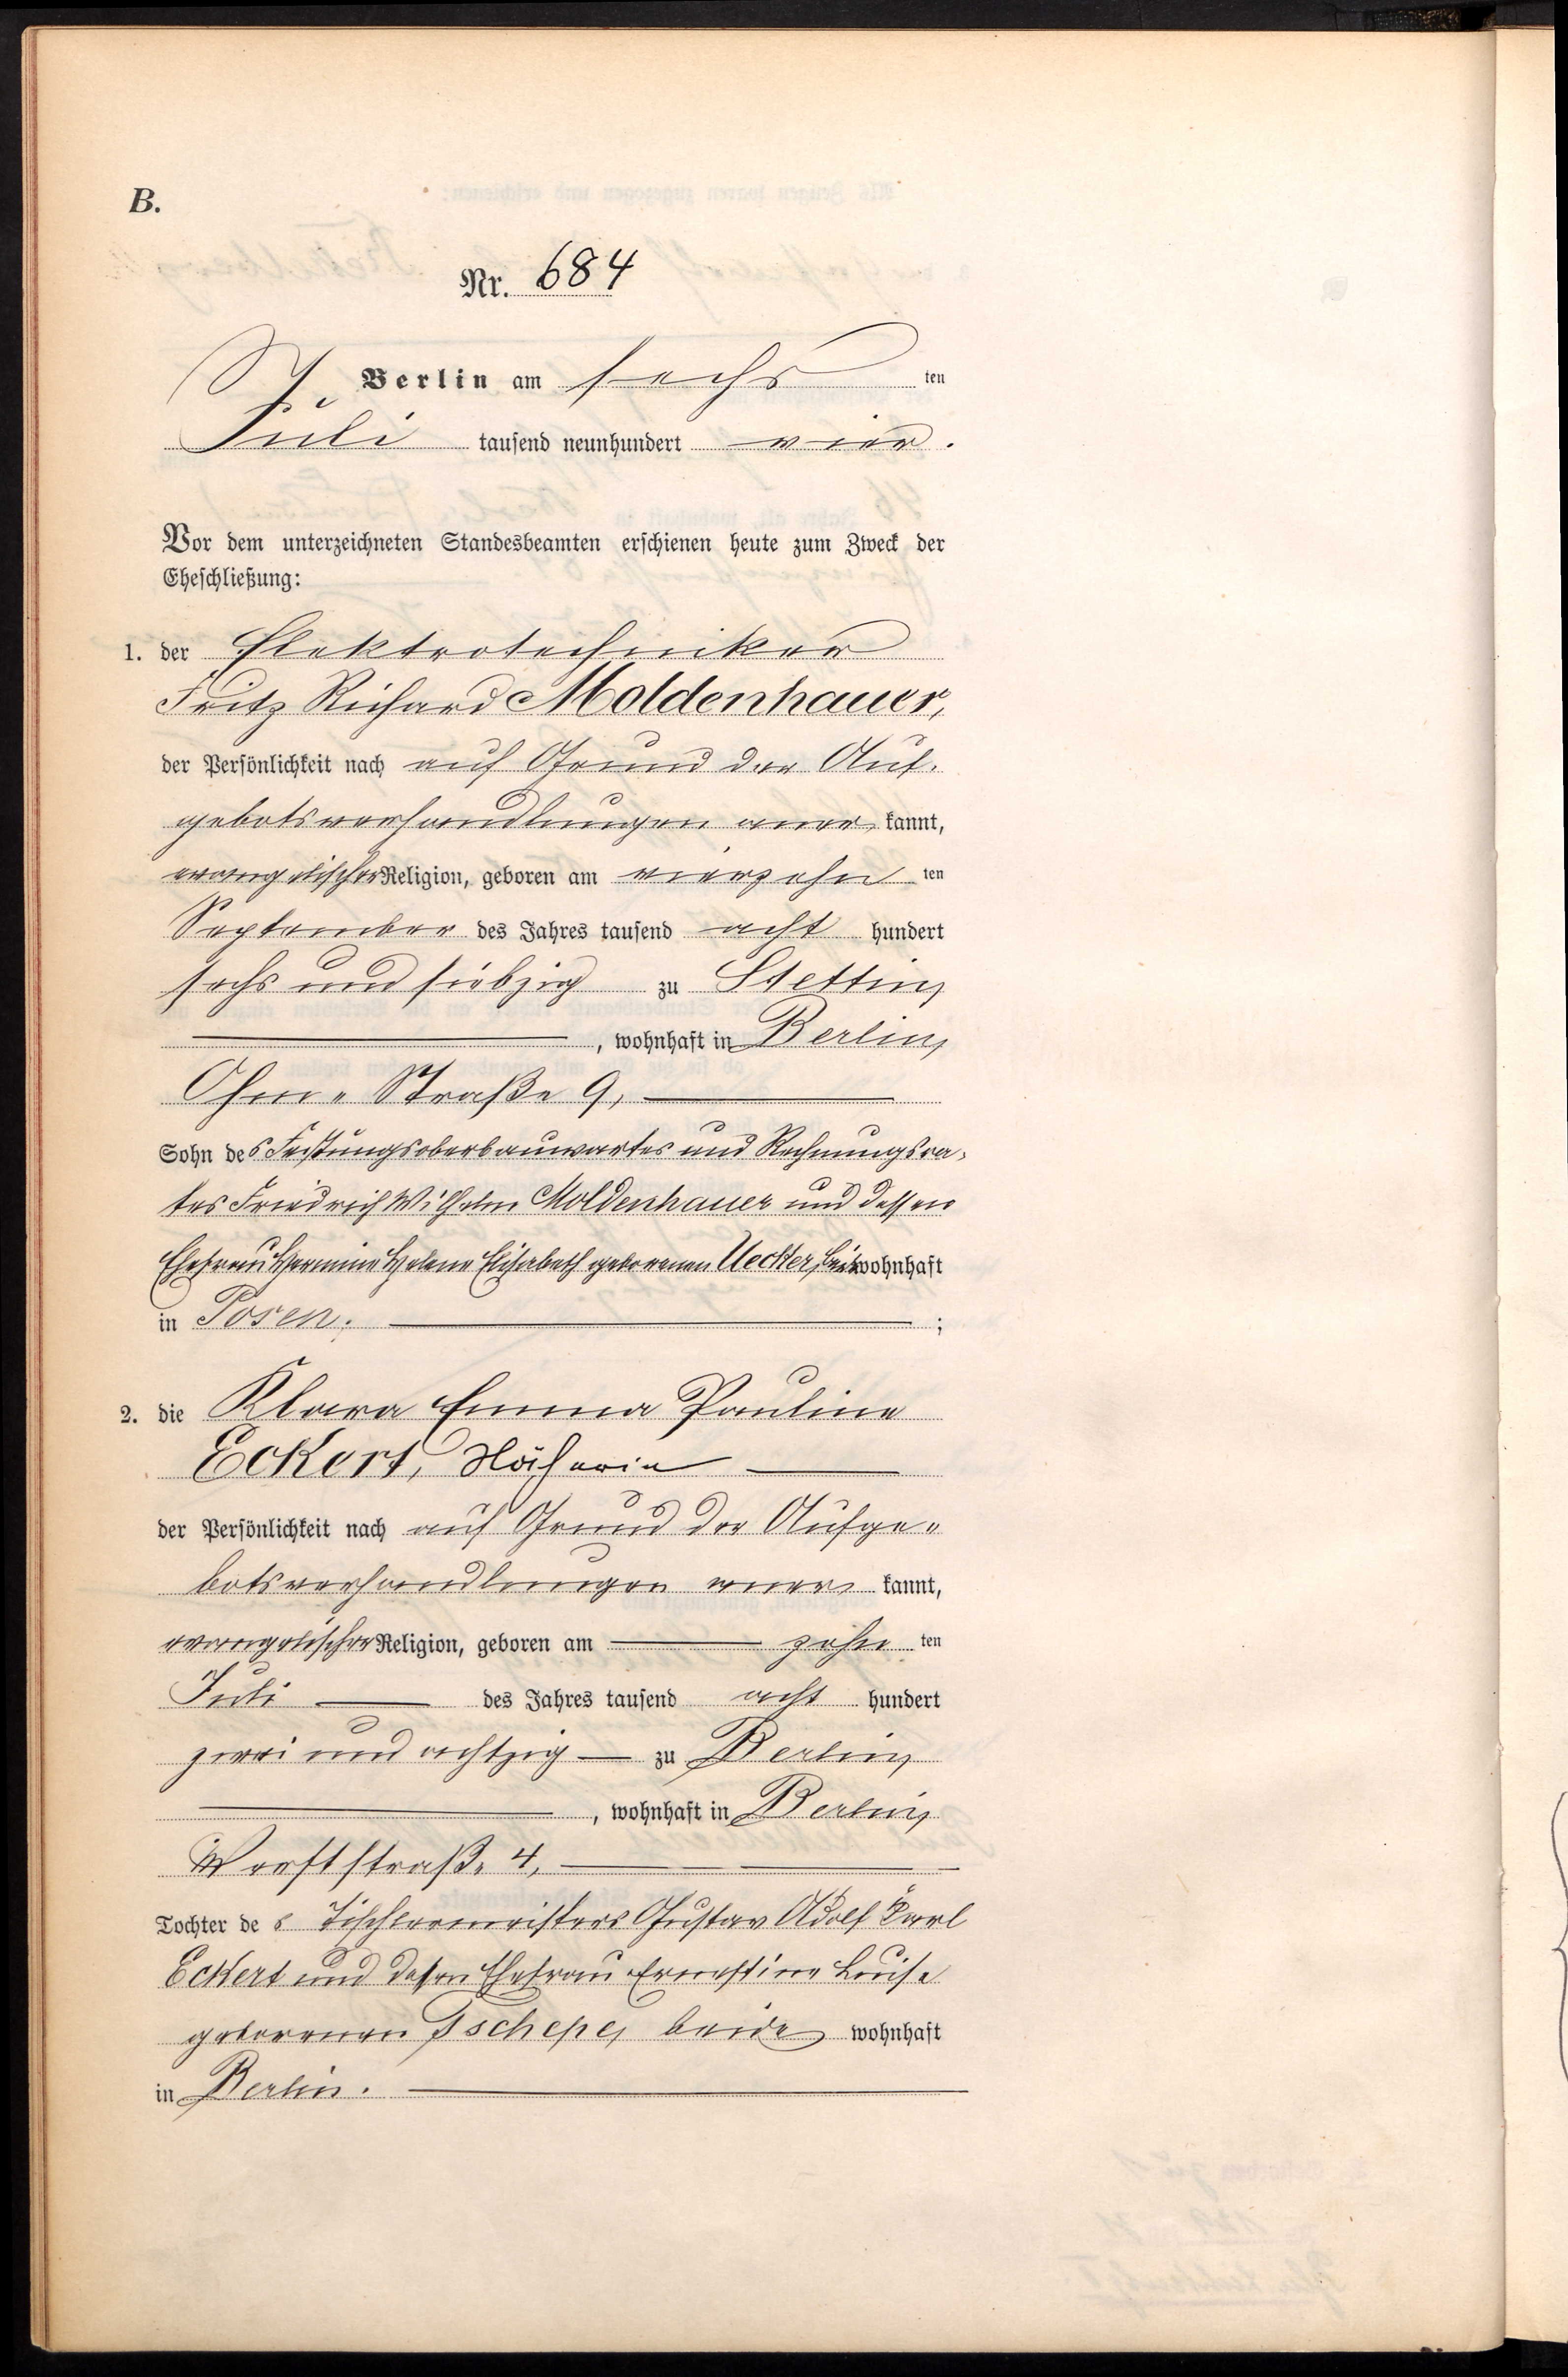 B.
Nr. 684
Berlin am sechs ten
Juli tausend neunhundert vier.
Vor dem unterzeichneten Standesbeamten erschienen heute zum Zweck der
Eheschließung:
1. der Elektrotechniker
Fritz Richard Moldenhauer,
der Persönlichkeit nach auf Grund der Auf-
gebotsverhandlungen aner kannt,
evangelischer Religion, geboren am vierzehn ten
September des Jahres tausend acht hundert
sechs und siebzig zu Stettin,
, wohnhaft in Berlin,
Ohm-Straße 9,
Sohn des Festungsoberbauwartes und Rechnungsra-
tes Friedrich Wilhelm Moldenhauer und dessen
Ehefrau Hermine Helene Elisabeth geborenen Uecker, beide wohnhaft
in Posen. ;
2. die Klara Emma Pauline
Eckert, Näherin
der Persönlichkeit nach auf Grund der Aufge-
botsverhandlungen aner kannt,
evangelischer Religion, geboren am zehn ten
Juli des Jahres tausend acht hundert
zwei und achtzig zu Berlin,
, wohnhaft in Berlin,
Werftstraße 4,
Tochter des Tischlermeisters Gustav Adolf Karl
Eckert und dessen Ehefrau Ernestine Luise
geborenen Tschepe, beide wohnhaft
in Berlin.